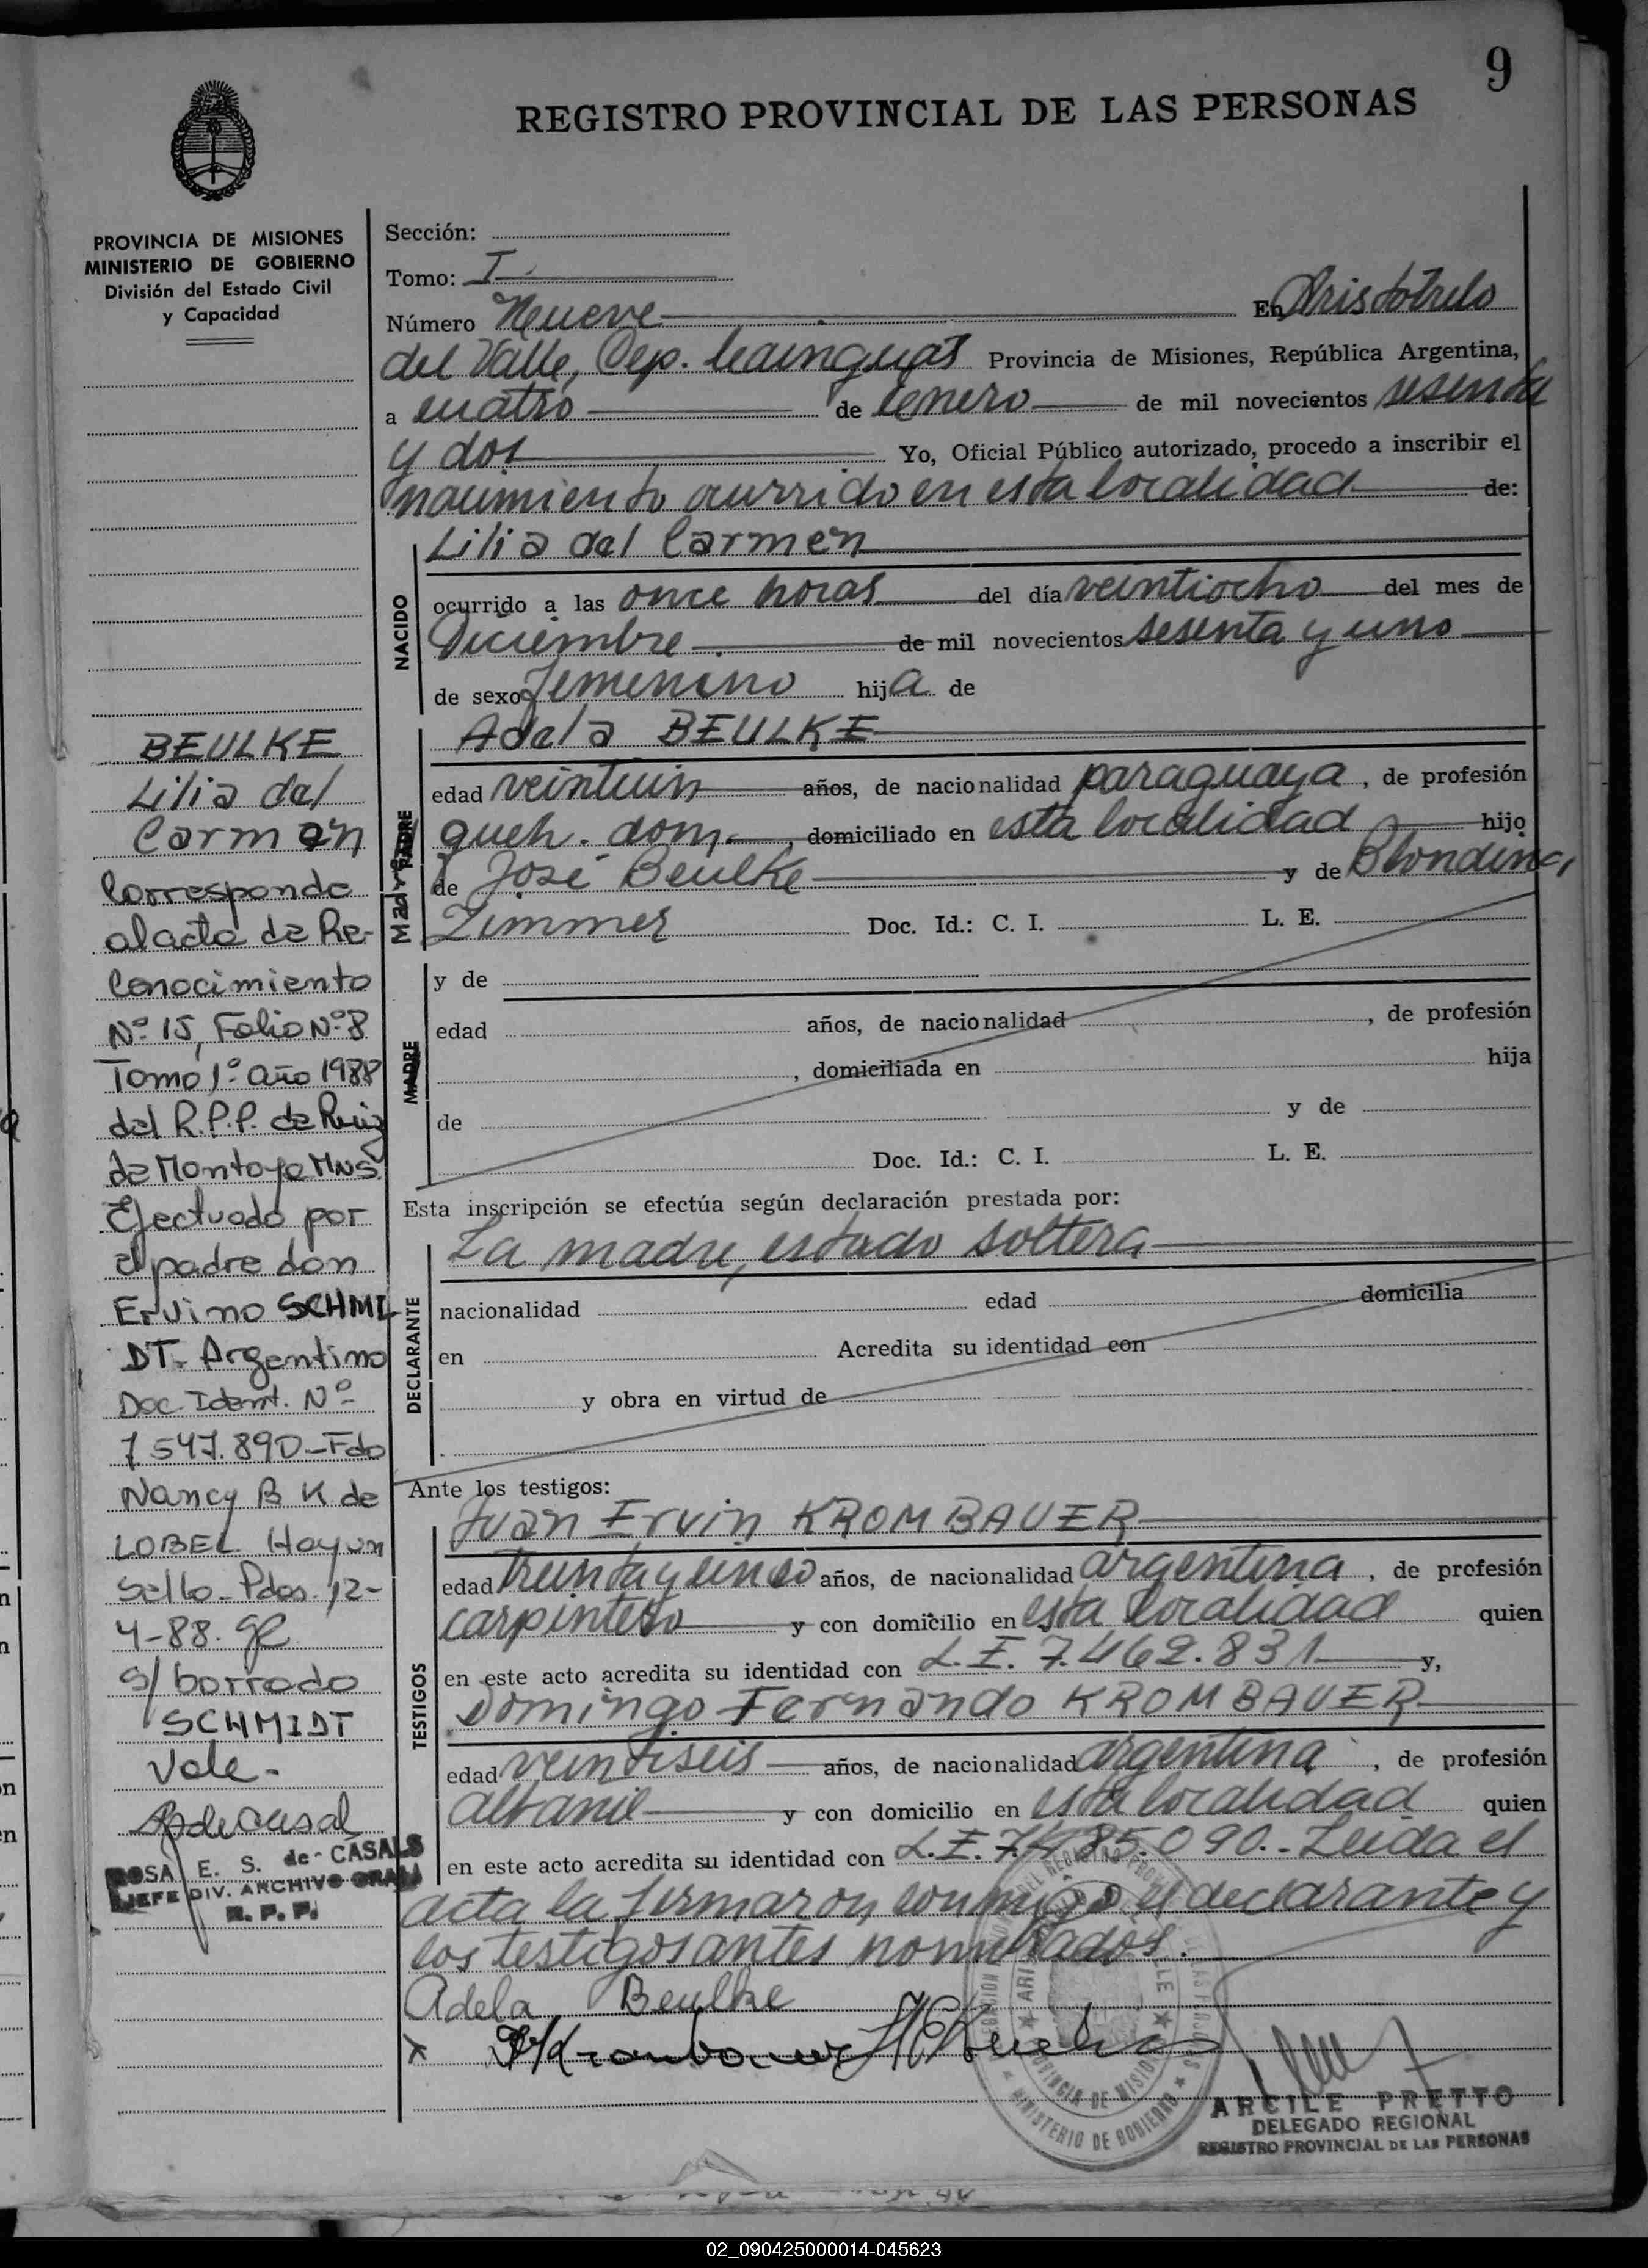 9
REGISTRO PROVINCIAL DE LAS PERSONAS
PROVINCIA DE MISIONES
MINISTERIO DE GOBIERNO
División del Estado Civil
y Capacidad
BEULKE
Lilia del
Carmen
Corresponde
al acta de Re-
conocimiento
Nº 15, Folio Nº 8
Tomo 1º año 1988
del R.P.P. de Ruiz
de Montoya Mns.
Efectuado por
el padre don
Ervino SCHMI
DT. Argentino
Doc. Ident. Nº
7.547.890 - Fdo
Nancy B K de
LOBEL Hay un
Sello - Pdas. 12-
4-88.
s/borrado
SCHMIDT
Vale -
ROSA E. S. de CASALS
JEFE DIV. ARCHIVO GRAL
R. P. P.
Sección:
Tomo: I
Número Nueve En Aristóbulo
del Valle, Dep. Cainguás Provincia de Misiones, República Argentina,
a cuatro de Enero de mil novecientos sesenta
y dos Yo, Oficial Público autorizado, procedo a inscribir el
nacimiento ocurrido en esta localidad de:
NACIDO
Lilia del Carmen
ocurrido a las once horas del día veintiocho del mes de
Diciembre de mil novecientos sesenta y uno
de sexo femenino hija de
Madre PADRE
Adela BEULKE
edad veintiun años, de nacionalidad paraguaya, de profesión
queh. dom., domiciliado en esta localidad hijo
de José Beulke y de Blondina
Zimmer Doc. Id.: C. I. L. E.
MADRE
y de
edad años, de nacionalidad , de profesión
, domiciliada en hija
de y de
Doc. Id.: C. I. L. E.
Esta inscripción se efectúa según declaración prestada por:
DECLARANTE
La madre, estado soltera
nacionalidad edad domicilia
en Acredita su identidad con
y obra en virtud de
Ante los testigos:
TESTIGOS
Juan Ervin KROMBAUER
edad treinta y cinco años, de nacionalidad argentina, de profesión
carpintero y con domicilio en esta localidad quien
en este acto acredita su identidad con L.E. 7.462.831 y,
Domingo Fernando KROMBAUER
edad veintiseis años, de nacionalidad argentina, de profesión
albanil y con domicilio en esta localidad quien
en este acto acredita su identidad con L.E. 7.485.090.- Leida el
acta la firmaron, conmigo el declarante y
los testigos antes nombrados.
Adela Beulke
MINISTERIO DE GOBIERNO
PROVINCIA DE MISIONES
ARCILE PRETTO
DELEGADO REGIONAL
REGISTRO PROVINCIAL DE LAS PERSONAS
02_090425000014-045623